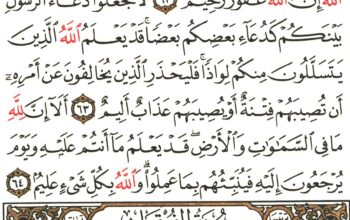 ٱللَّهَ إِنَّ ٱللَّهَ غَفُورٌ رَّحِيمٌ ٦٢ لَّا تَجْعَلُوا۟ دُعَآءَ ٱلرَّسُولِ
بَيْنَكُمْ كَدُعَآءِ بَعْضِكُم بَعْضًا قَدْ يَعْلَمُ ٱللَّهُ ٱلَّذِينَ
يَتَسَلَّلُونَ مِنكُمْ لِوَاذًا فَلْيَحْذَرِ ٱلَّذِينَ يُخَالِفُونَ عَنْ أَمْرِهِۦٓ
أَن تُصِيبَهُمْ فِتْنَةٌ أَوْ يُصِيبَهُمْ عَذَابٌ أَلِيمٌ ٦٣ أَلَآ إِنَّ لِلَّهِ
مَا فِى ٱلسَّمَٰوَٰتِ وَٱلْأَرْضِ قَدْ يَعْلَمُ مَآ أَنتُمْ عَلَيْهِ وَيَوْمَ
يُرْجَعُونَ إِلَيْهِ فَيُنَبِّئُهُم بِمَا عَمِلُوا۟ وَٱللَّهُ بِكُلِّ شَىْءٍ عَلِيمٌۢ ٦٤
سُورَةُ ٱلْفُرْقَانِ